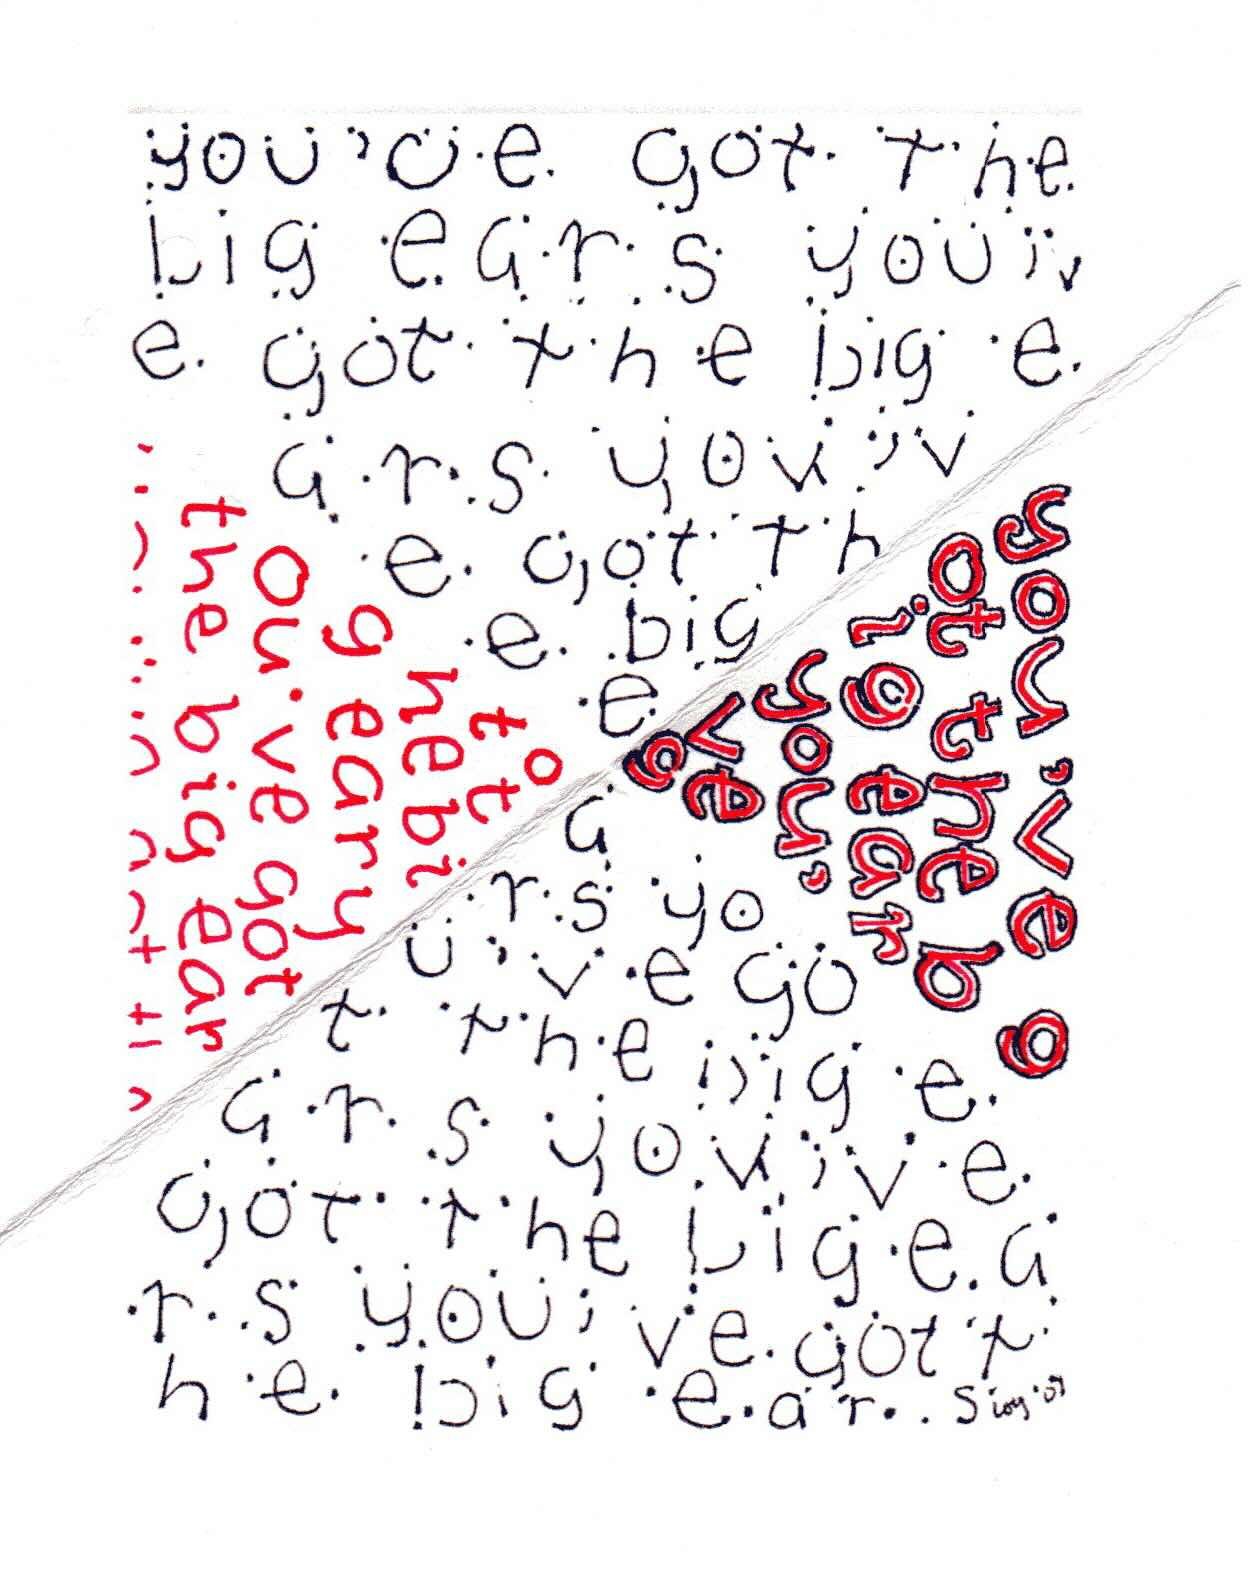 you've got the
big ears you'v
e got the big e
ars you'v
e got th
e big
e
a
rs yo
u've go
t the big e
ars you've
got the big ea
rs you've got t
he big ear s
you've g
ot the b
ig ear
y you'
ve
g
the big ear
ou've got
g eary
hebi
t t
o